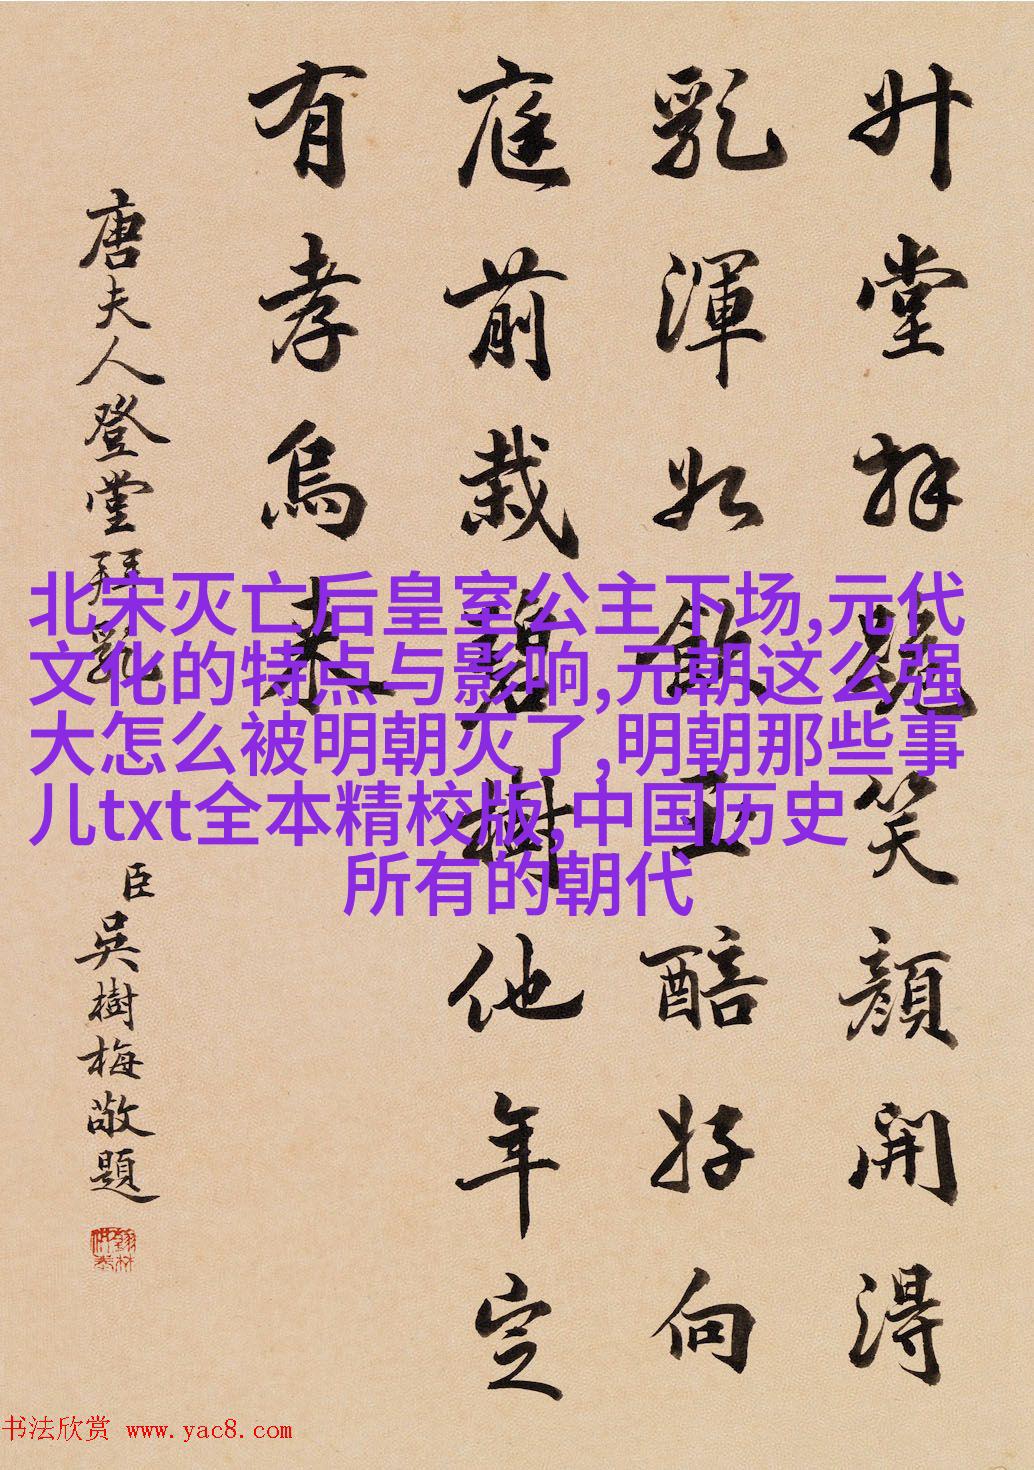 升堂拜跪笑顏開得
乳渾如飲玉醅好向
庭前栽碧樹他年定
有孝烏來
唐夫人登堂拜乳
臣吳樹梅敬題
北宋灭亡后皇室公主下场,元代
文化的特点与影响,元朝这么强
大怎么被明朝灭了,明朝那些事
儿txt全本精校版,中国历史
所有的朝代
书法欣赏 www.yac8.com